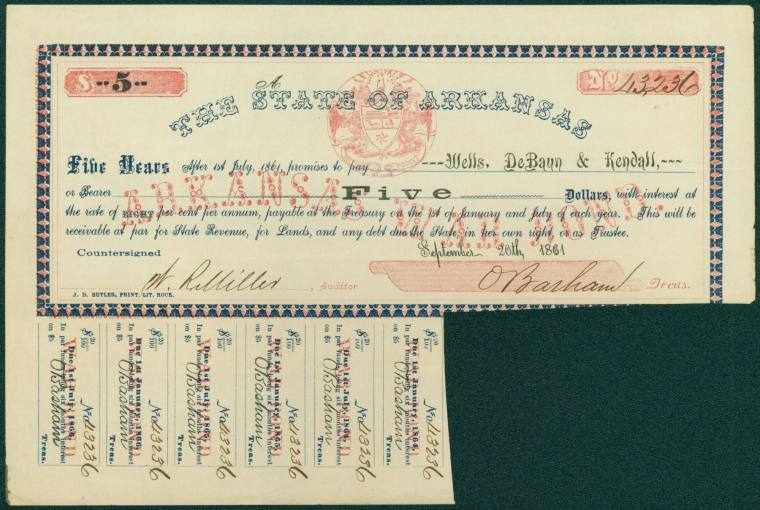 $ --5--
A
No 43236
THE STATE OF ARKANSAS
Five Years After 1st July, 1861, promises to pay ---Wells, DeBaun & Kendall,---
or Bearer Five Dollars, with interest at
the rate of EIGHT per cent per annum, payable at the Treasury on the 1st of January and July of each year. This will be
receivable at par for State Revenue, for Lands, and any debt due the State, in her own right, or as Trustee.
ARKANSAS WAR BOND.
September 20th, 1861
Countersigned
W. R. Miller, Auditor
O Basham Treas.
J. D. BUTLER, PRINT. LIT. ROCK.
$ 20/100 No 43236
Due 1st July, 1866,
In par funds being six months interest
on $5 O Basham
Treas.
$ 20/100 No 43236
Due 1st January, 1866,
In par funds being six months interest
on $5 O Basham
Treas.
$ 20/100 No 43236
Due 1st July, 1865,
In par funds being six months interest
on $5 O Basham
Treas.
$ 20/100 No 43236
Due 1st January, 1865,
In par funds being six months interest
on $5 O Basham
Treas.
$ 20/100 No 43236
Due 1st July, 1864,
In par funds being six months interest
on $5 O Basham
Treas.
$ 20/100 No 43236
Due 1st January, 1864,
In par funds being six months interest
on $5 O Basham
Treas.